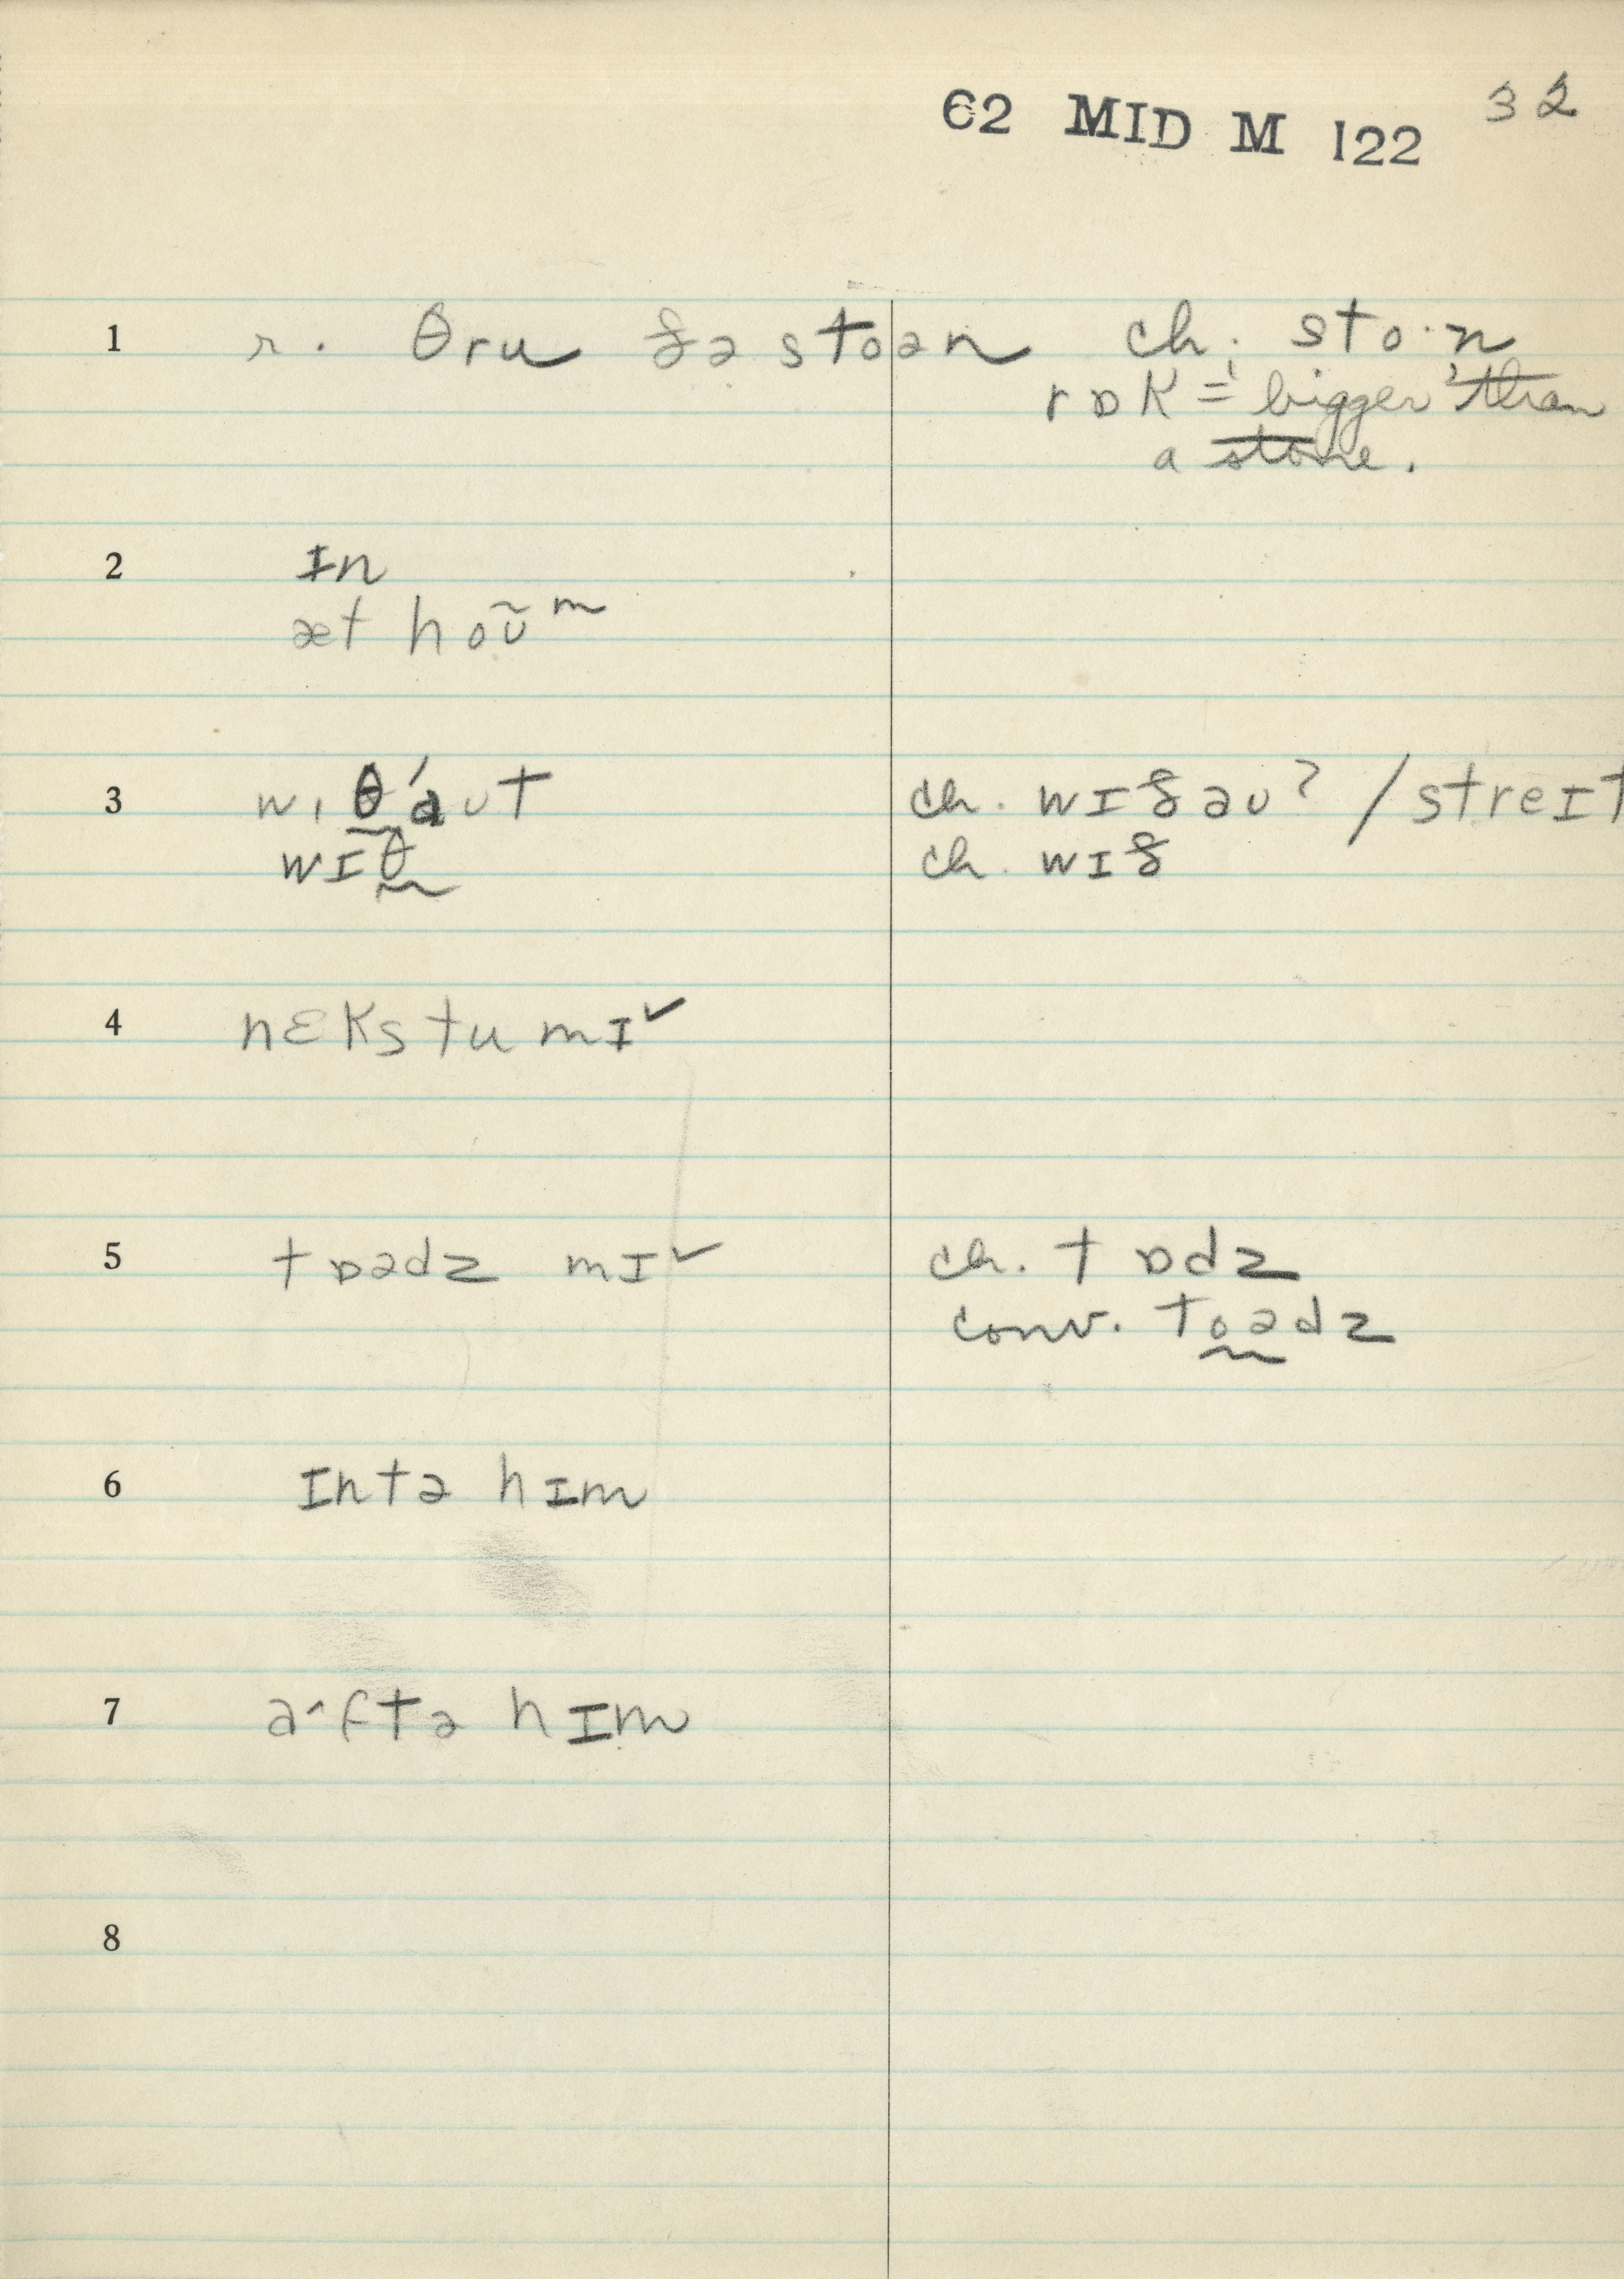 62 MID M 122 32
1 r. θru ðə stoən ch. sto·n
rɒk = 'bigger' than
a stone.
2 ɪn
æt hoʊ̃ᵐ
3 wɪθ'aʊt ch. wɪðəʊʔ / streɪt
wɪθ ch. wɪð
4 nɛks tu mɪ ✓
5 tɒədz mɪ ✓ ch. tɒdz
conv. toədz
6 ɪntə hɪm
7 a^ftə hɪm
8